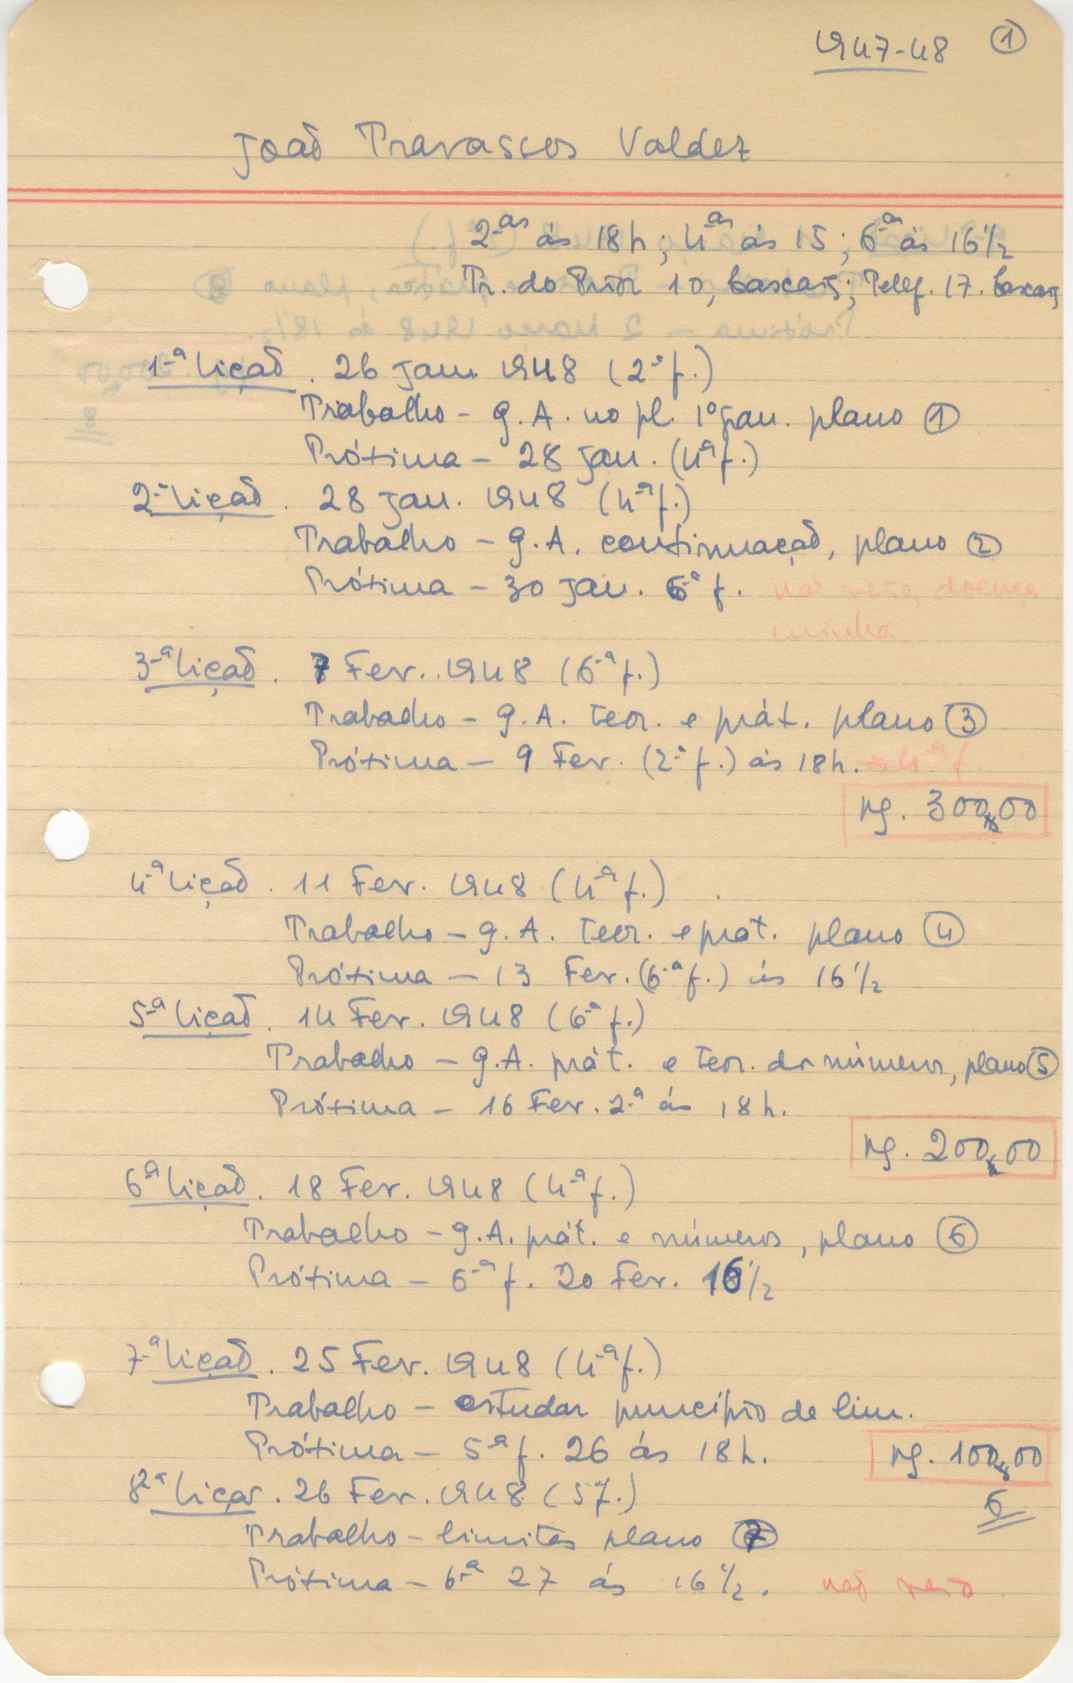 1947-48 ①
João Travassos Valdez
2-as às 18h; 4as às 15; 6-a às 16½
Tr. do Prior 10, Cascais; Telef. 17. Cascais
1-ª lição. 26 jan. 1948 (2ª f.)
Trabalho - g. A. no pl. 1º gau. plano ①
Próxima - 28 jan. (4ª f.)
2-ª lição. 28 jan. 1948 (4-ª f.)
Trabalho - g. A. continuação, plano ②
Próxima - 30 jan. 6-ª f. não veio, doença
minha
3-ª lição. 7 Fev. 1948 (6-ª f.)
Trabalho - g. A. teor. e prát. plano ③
Próxima - 9 Fev. (2-ª f.) às 18h. 4-ª f.
pg. 300$00
4-ª lição. 11 Fev. 1948 (4-ª f.)
Trabalho - g. A. teor. e prát. plano ④
Próxima - 13 Fev. (6-ª f.) às 16½
5-ª lição. 14 Fev. 1948 (6-ª f.)
Trabalho - g. A. prát. e teor. dos números, plano ⑤
Próxima - 16 Fev. 2-ª às 18h.
pg. 200$00
6ª lição. 18 Fev. 1948 (4-ª f.)
Trabalho - g. A. prát. e números, plano ⑥
Próxima - 6-ª f. 20 Fev. 16½
7-ª lição. 25 Fev. 1948 (4-ª f.)
Trabalho - estudar princípio de lim.
Próxima - 5ª f. 26 às 18h. pg. 100$00
8ª lição. 26 Fev. 1948 (5 f.) 6
Trabalho - limites plano ⑦
Próxima - 6-ª 27 às 16½. não veio